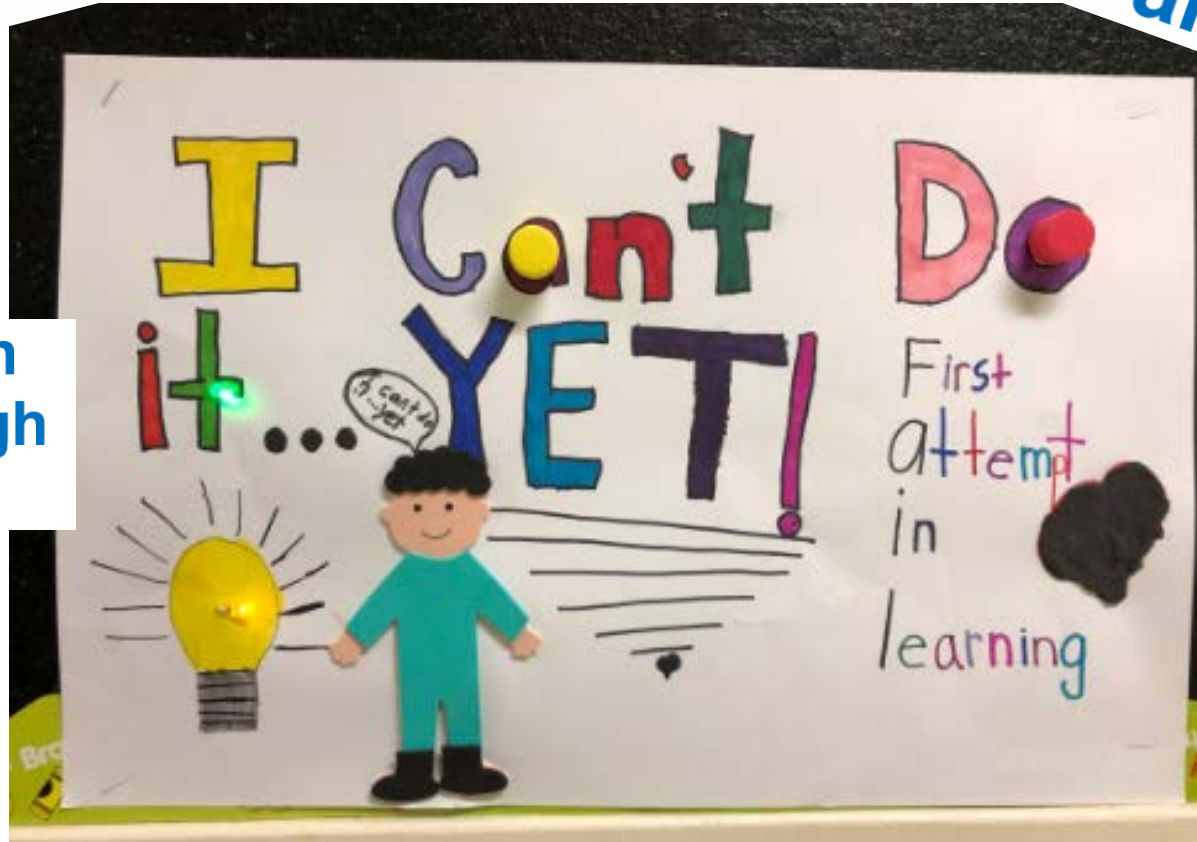 I Can't Do
it... YET!
I can't do
it ...yet
First
attempt
in
learning
gh
Bro